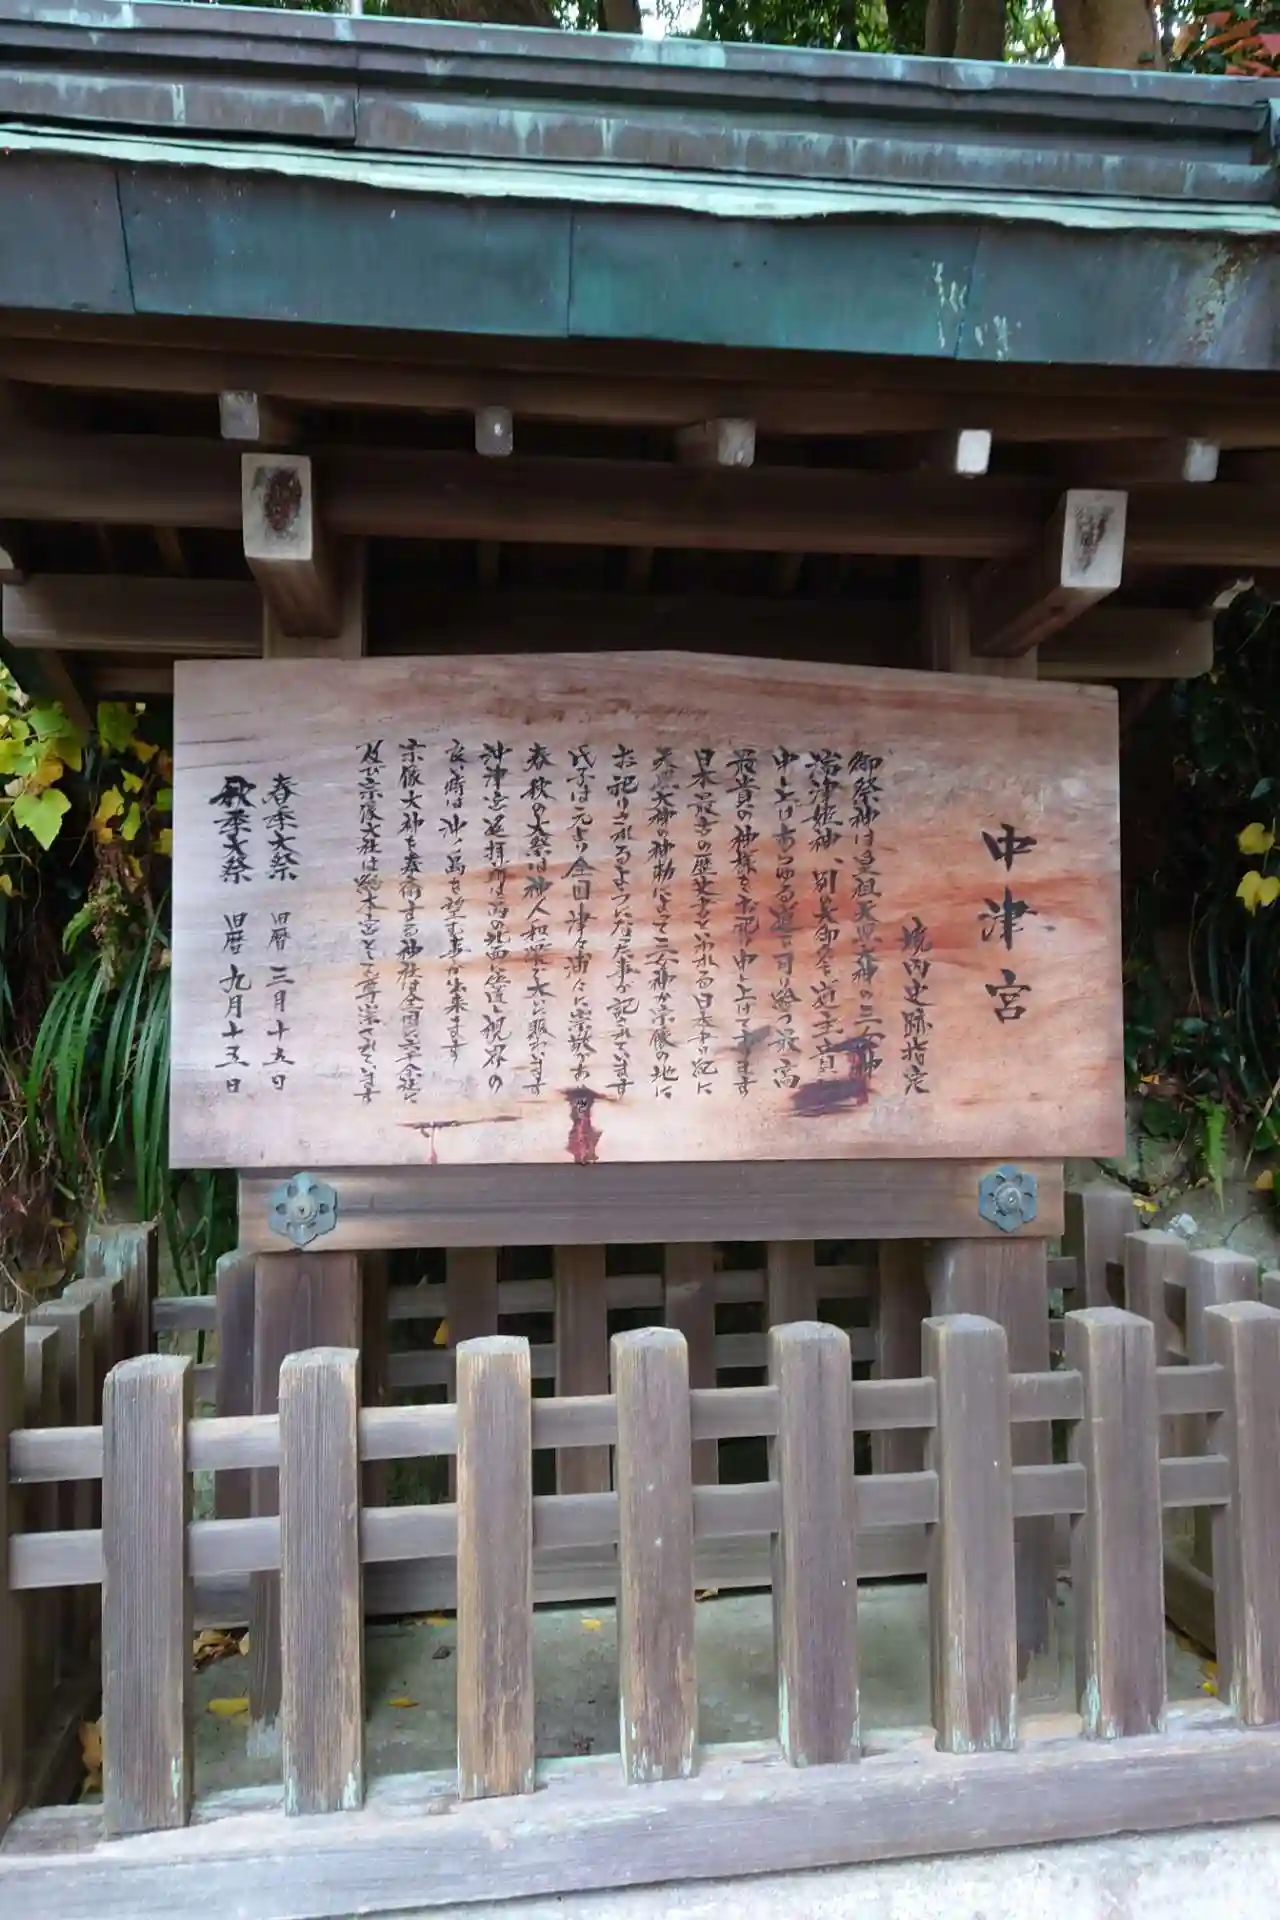 中津宮
境内史跡指定
御祭神は皇祖天照大神の三女神
湍津姫神、別の御名を道主貴
申し上げあらゆる道を司り給う最高
最貴の神様をお祀り申し上げています
日本最古の歴史書といわれる日本書紀に
天照大神の神勅によって三女神が宗像の地に
お祀りされるようになった事が記されています
氏子は元より全国津々浦々に崇敬があ
春秋の大祭は神人和楽で大いに賑わいます
沖津宮遥拝所は島の北面に位置し視界の
良い時は沖ノ島を望む事が出来ます
宗像大神を奉斎する神社は全国六千余社に
及び宗像大社は総本宮として尊崇されています
春季大祭 旧暦 三月十五日
秋季大祭 旧暦 九月十五日